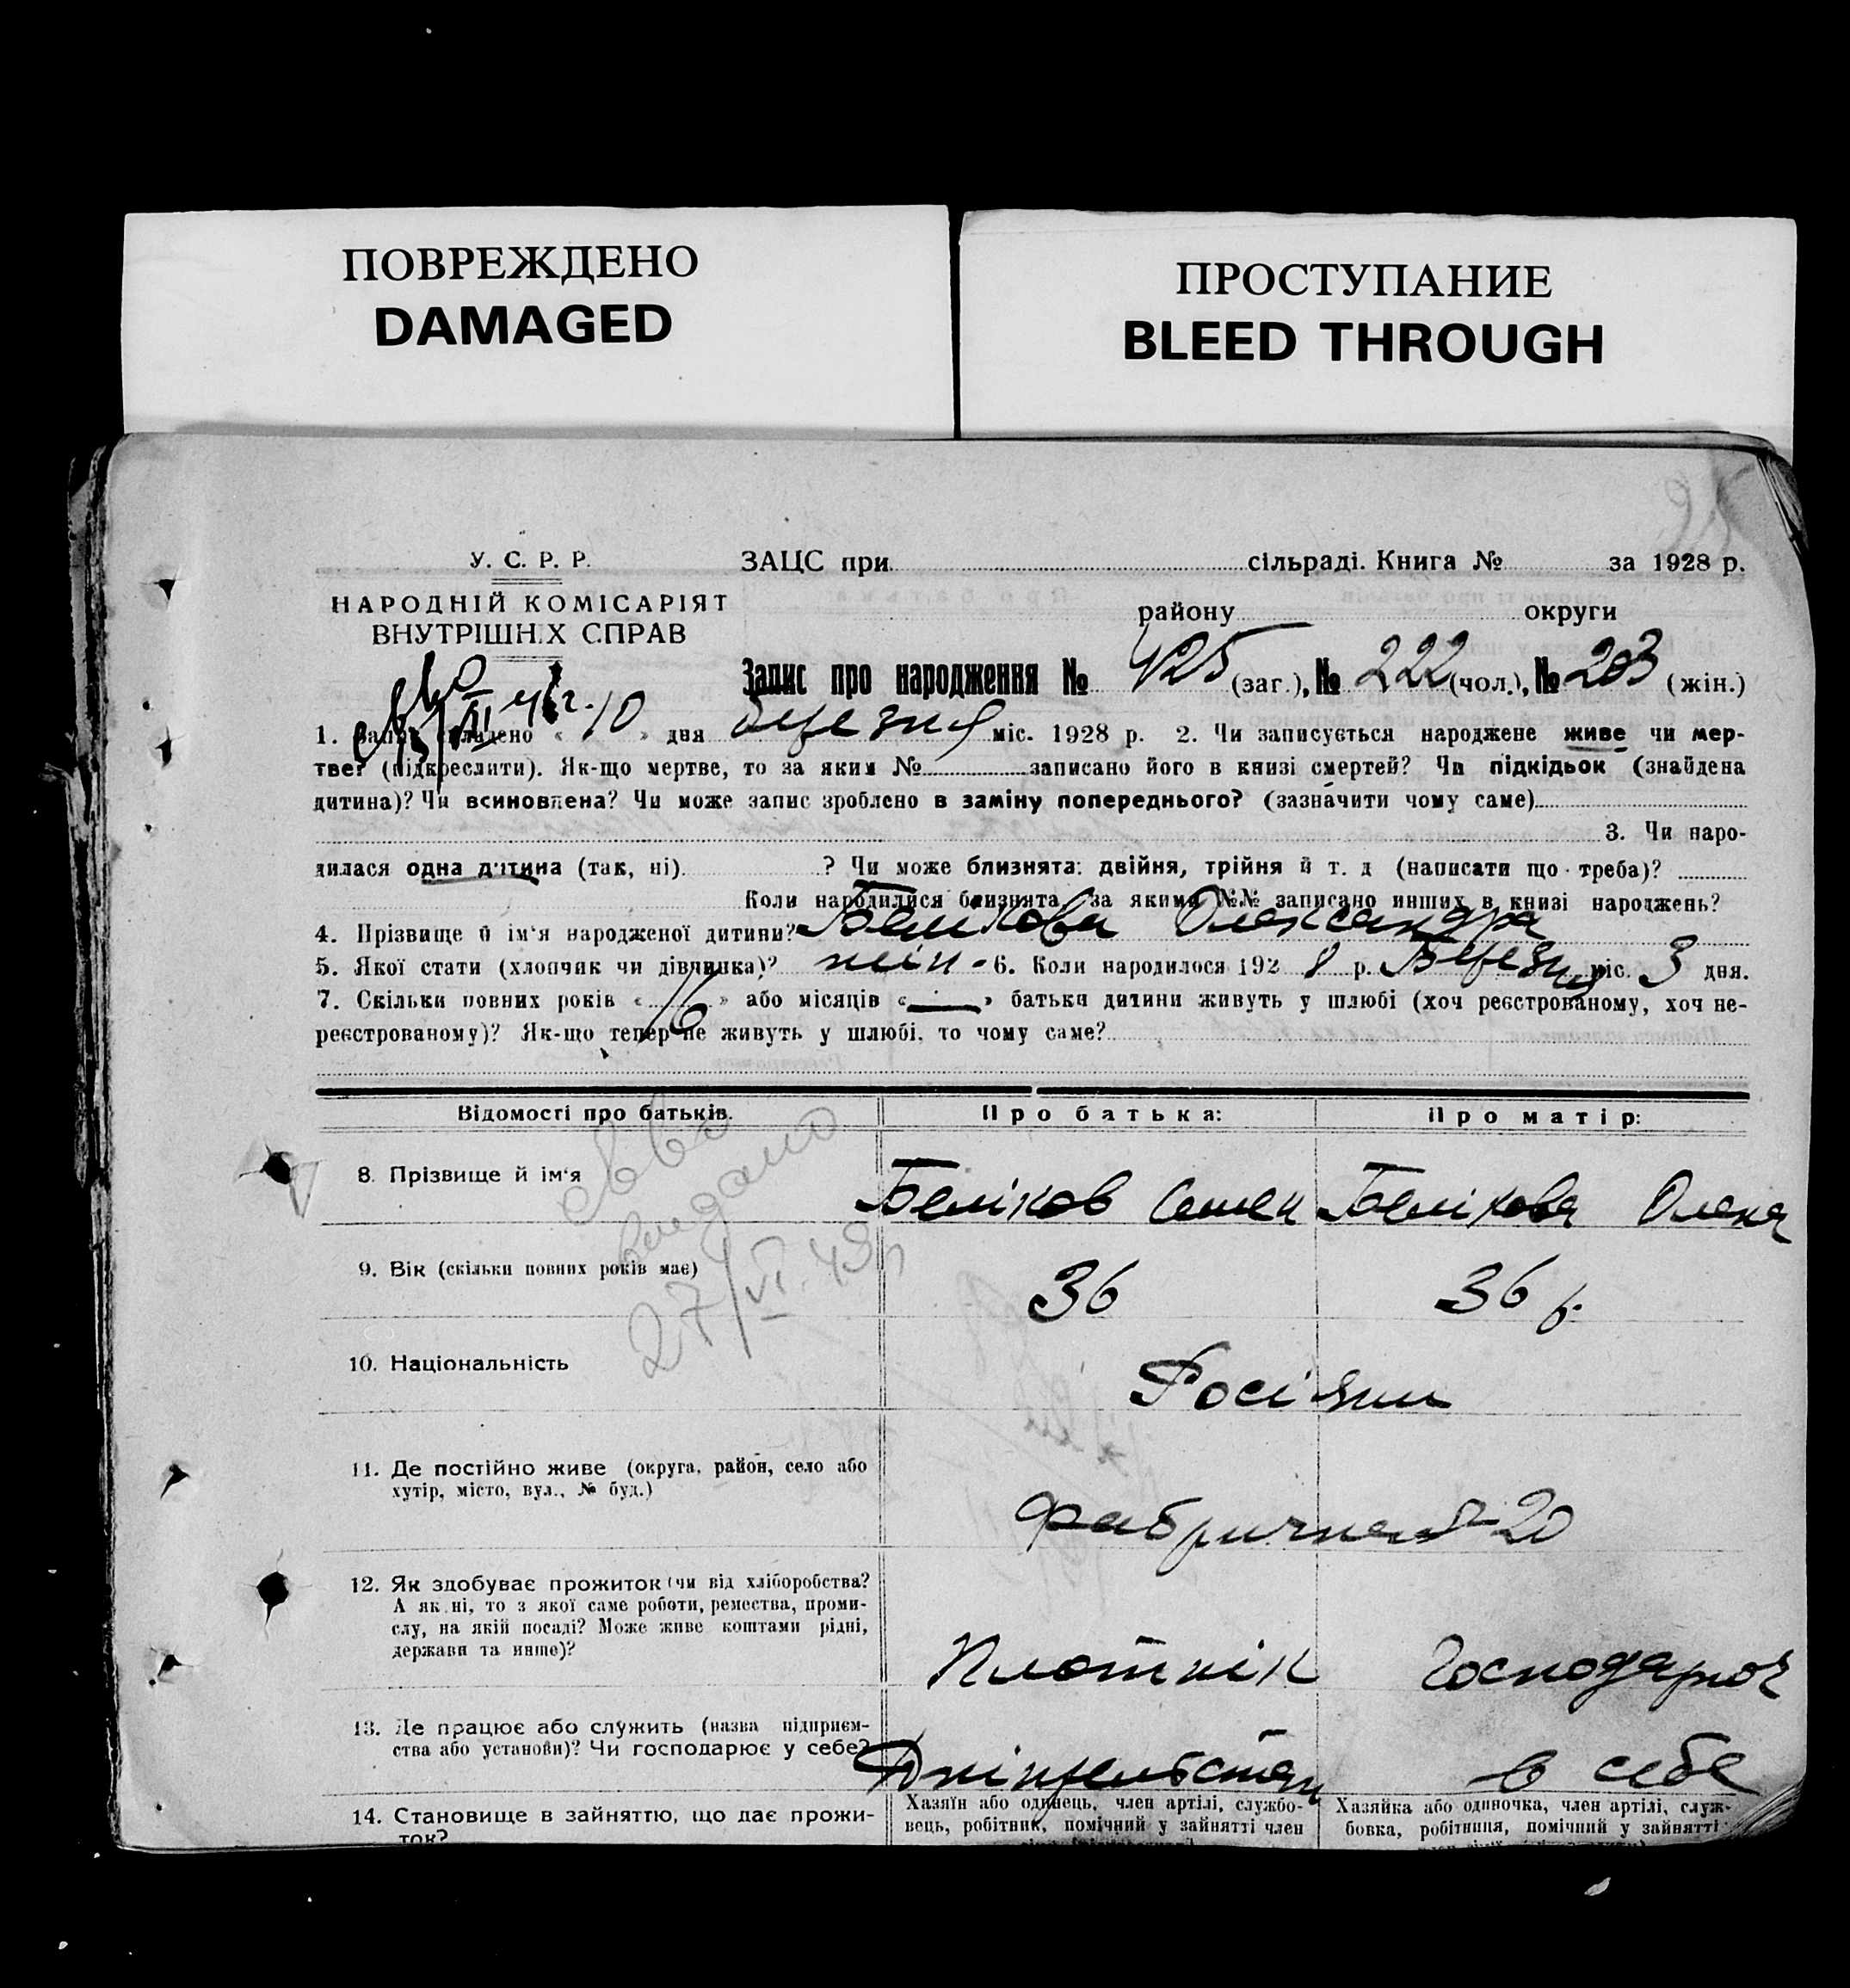 ПОВРЕЖДЕНО
DAMAGED
ПРОСТУПАНИЕ
BLEED THROUGH
У. С. Р. Р.
НАРОДНІЙ КОМІСАРІЯТ
ВНУТРІШНІХ СПРАВ
ЗАЦС при сільраді. Книга № за 1928 р.
району округи
Запис про народження № 425 (заг.), № 222 (чол.), № 203 (жін.)
1. Запис складено « 10 » дня березня міс. 1928 р. 2. Чи записується народжене живе чи мер-
тве? (підкреслити). Як-що мертве, то за яким № записано його в книзі смертей? Чи підкідьок (знайдена
дитина)? Чи всиновлена? Чи може запис зроблено в заміну попереднього? (зазначити чому саме)
3. Чи наро-
дилася одна дитина (так, ні) ? Чи може близнята: двійня, трійня й т. д (написати що треба)?
Коли народилися близнята, за якими №№ записано инших в книзі народжень?
4. Прізвище й ім'я народженої дитини? Белікова Олександра
5. Якої статі (хлопчик чи дівчинка)? жін. 6. Коли народилося 1928 р. Березня міс. 3 дня.
7. Скільки повних років « 16 » або місяців « — » батьки дитини живуть у шлюбі (хоч реєстрованому, хоч не-
реєстрованому)? Як-що тепер не живуть у шлюбі, то чому саме?
Відомості про батьків. Про батька: Про матір:
8. Прізвище й ім'я Беліков Семен Белікова Олена
9. Вік (скільки повних років має) 36 36 р.
видано
27/VI.
10. Національність Росіяни
11. Де постійно живе (округа, район, село або
хутір, місто, вул., № буд.)
Фабрична 20
12. Як здобуває прожиток (чи від хліборобства?
А як ні, то з якої саме роботи, ремества, проми-
слу, на якій посаді? Може живе коштами рідні,
держави та инше)?
Плотнік Господарює
13. Де працює або служить (назва підприєм-
ства або установи)? Чи господарює у себе?
в себе
14. Становище в зайняттю, що дає прожи-
ток?
Хазяїн або одинець, член артілі, службо-
вець, робітник, помічний у зайнятті член
Хазяйка або одиночка, член артілі, служ-
бовка, робітниця, помічний у зайнятті